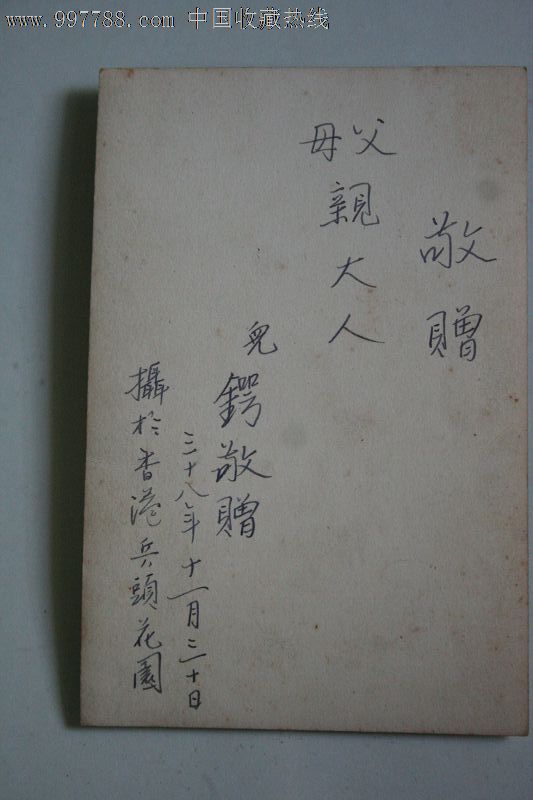 www.997788.com 中国收藏热线
敬贈
父母親大人
兒鍔敬贈
三十八年十一月三十日
攝於香港兵頭花園